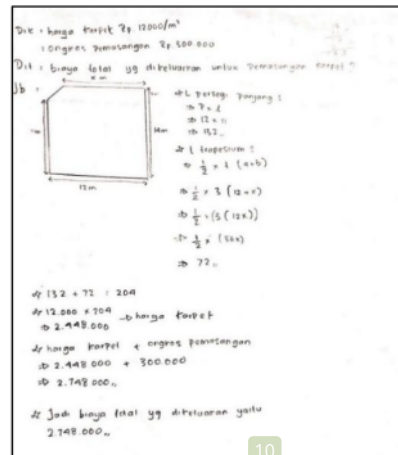 Dik : harga karpet Rp. 12000/m²
: ongkos pemasangan Rp. 300.000
Dit : biaya total yg dikeluarkan untuk pemasangan karpet ?
Jb :
12 m
L persegi panjang :
⇒ P × l
⇒ 12 × 11
⇒ 132,,
L trapesium :
⇒ 1/2 × t (a+b)
⇒ 72,,
132 + 72 = 204
12.000 × 204
⇒ 2.448.000 → harga karpet
harga karpet + ongkos pemasangan
⇒ 2.448.000 + 300.000
⇒ 2.748.000,,
Jadi biaya total yg dikeluarkan yaitu
2.748.000,,
10